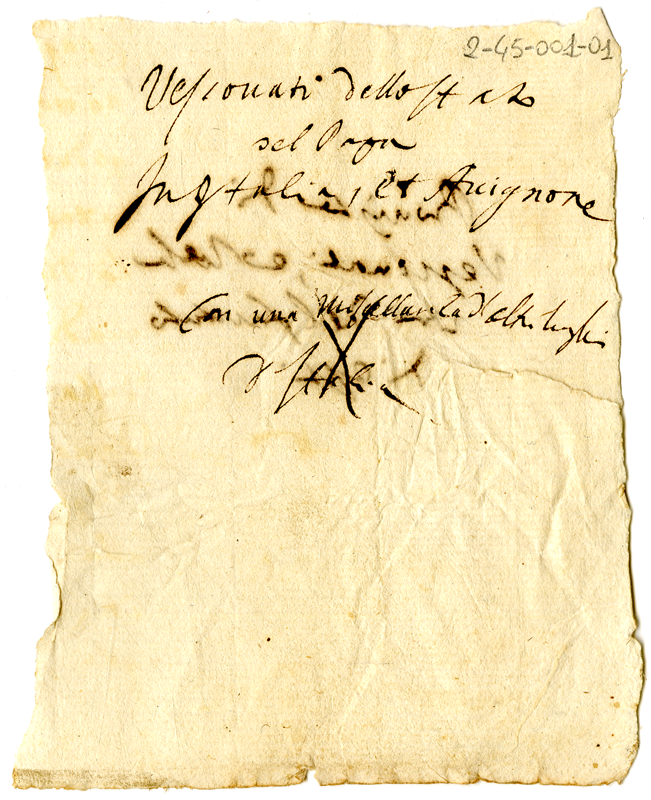 2-45-001-01
Vescovati dello stato
del Papa
In Italia, et Avignone
Con una Miscellanea d'altri luoghi
d'Italia